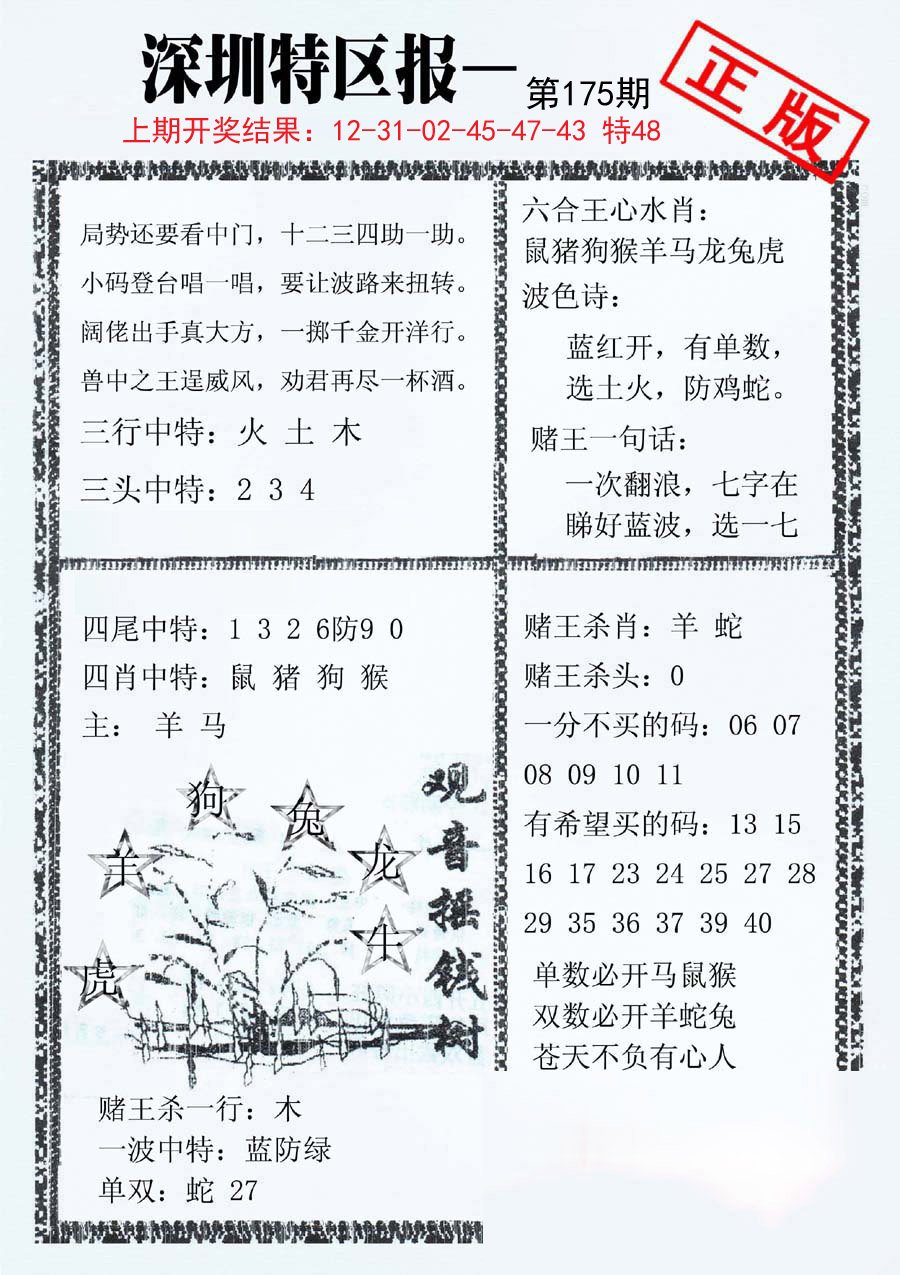 深圳特区报—
第175期
正版
上期开奖结果：12-31-02-45-47-43 特48
局势还要看中门，十二三四助一助。
小码登台唱一唱，要让波路来扭转。
阔佬出手真大方，一掷千金开洋行。
兽中之王逞威风，劝君再尽一杯酒。
三行中特：火 土 木
三头中特：2 3 4
六合王心水肖：
鼠猪狗猴羊马龙兔虎
波色诗：
蓝红开，有单数，
选土火，防鸡蛇。
赌王一句话：
一次翻浪，七字在
睇好蓝波，选一七
四尾中特：1 3 2 6防9 0
四肖中特：鼠 猪 狗 猴
主： 羊 马
狗
兔
羊
龙
牛
虎
观音摇钱树
赌王杀一行：木
一波中特：蓝防绿
单双：蛇 27
赌王杀肖：羊 蛇
赌王杀头：0
一分不买的码：06 07
08 09 10 11
有希望买的码：13 15
16 17 23 24 25 27 28
29 35 36 37 39 40
单数必开马鼠猴
双数必开羊蛇兔
苍天不负有心人